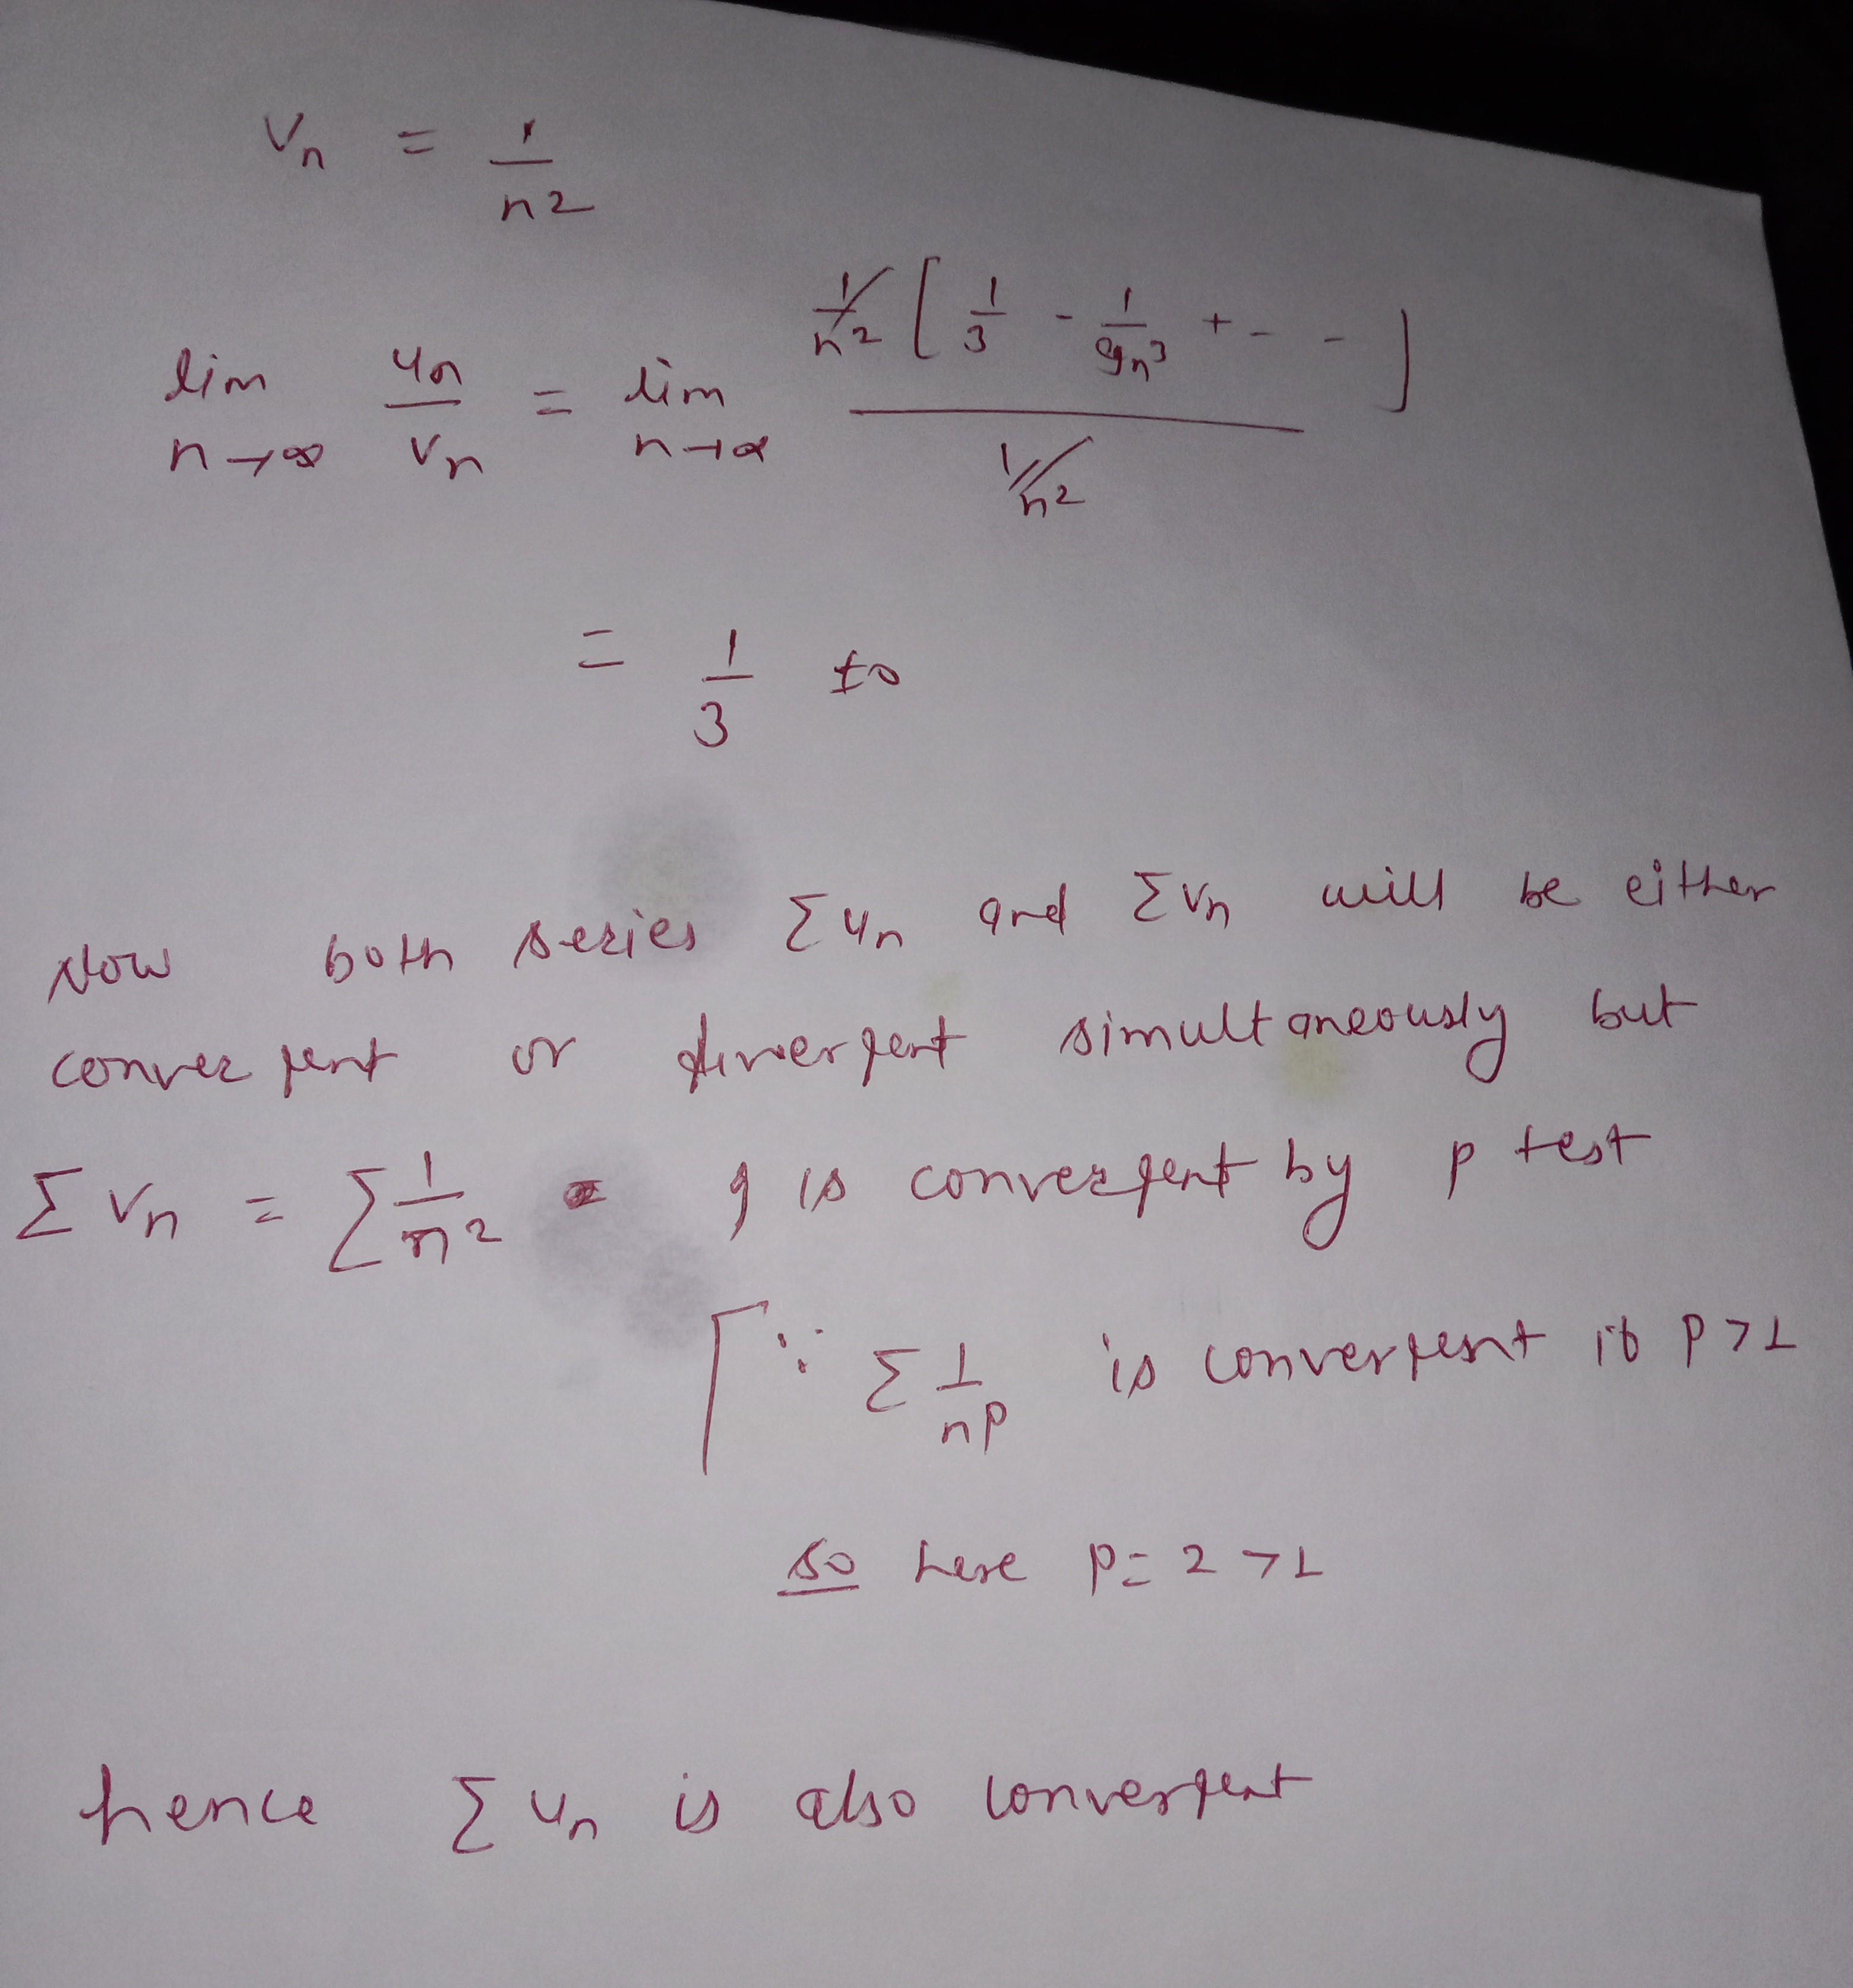 Vn = 1/n2
lim n→∞ un/vn = lim n→∞ 1/n2 [ 1/3 - 1/9n3 + - - ] / 1/n2
= 1/3 ≠0
Now both series Σun and Σvn will be either
convergent or divergent simultaneously but
Σvn = Σ1/n2 is convergent by p test
[∵ Σ 1/np is convergent if p>1
so here p=2>1
hence Σun is also convergent